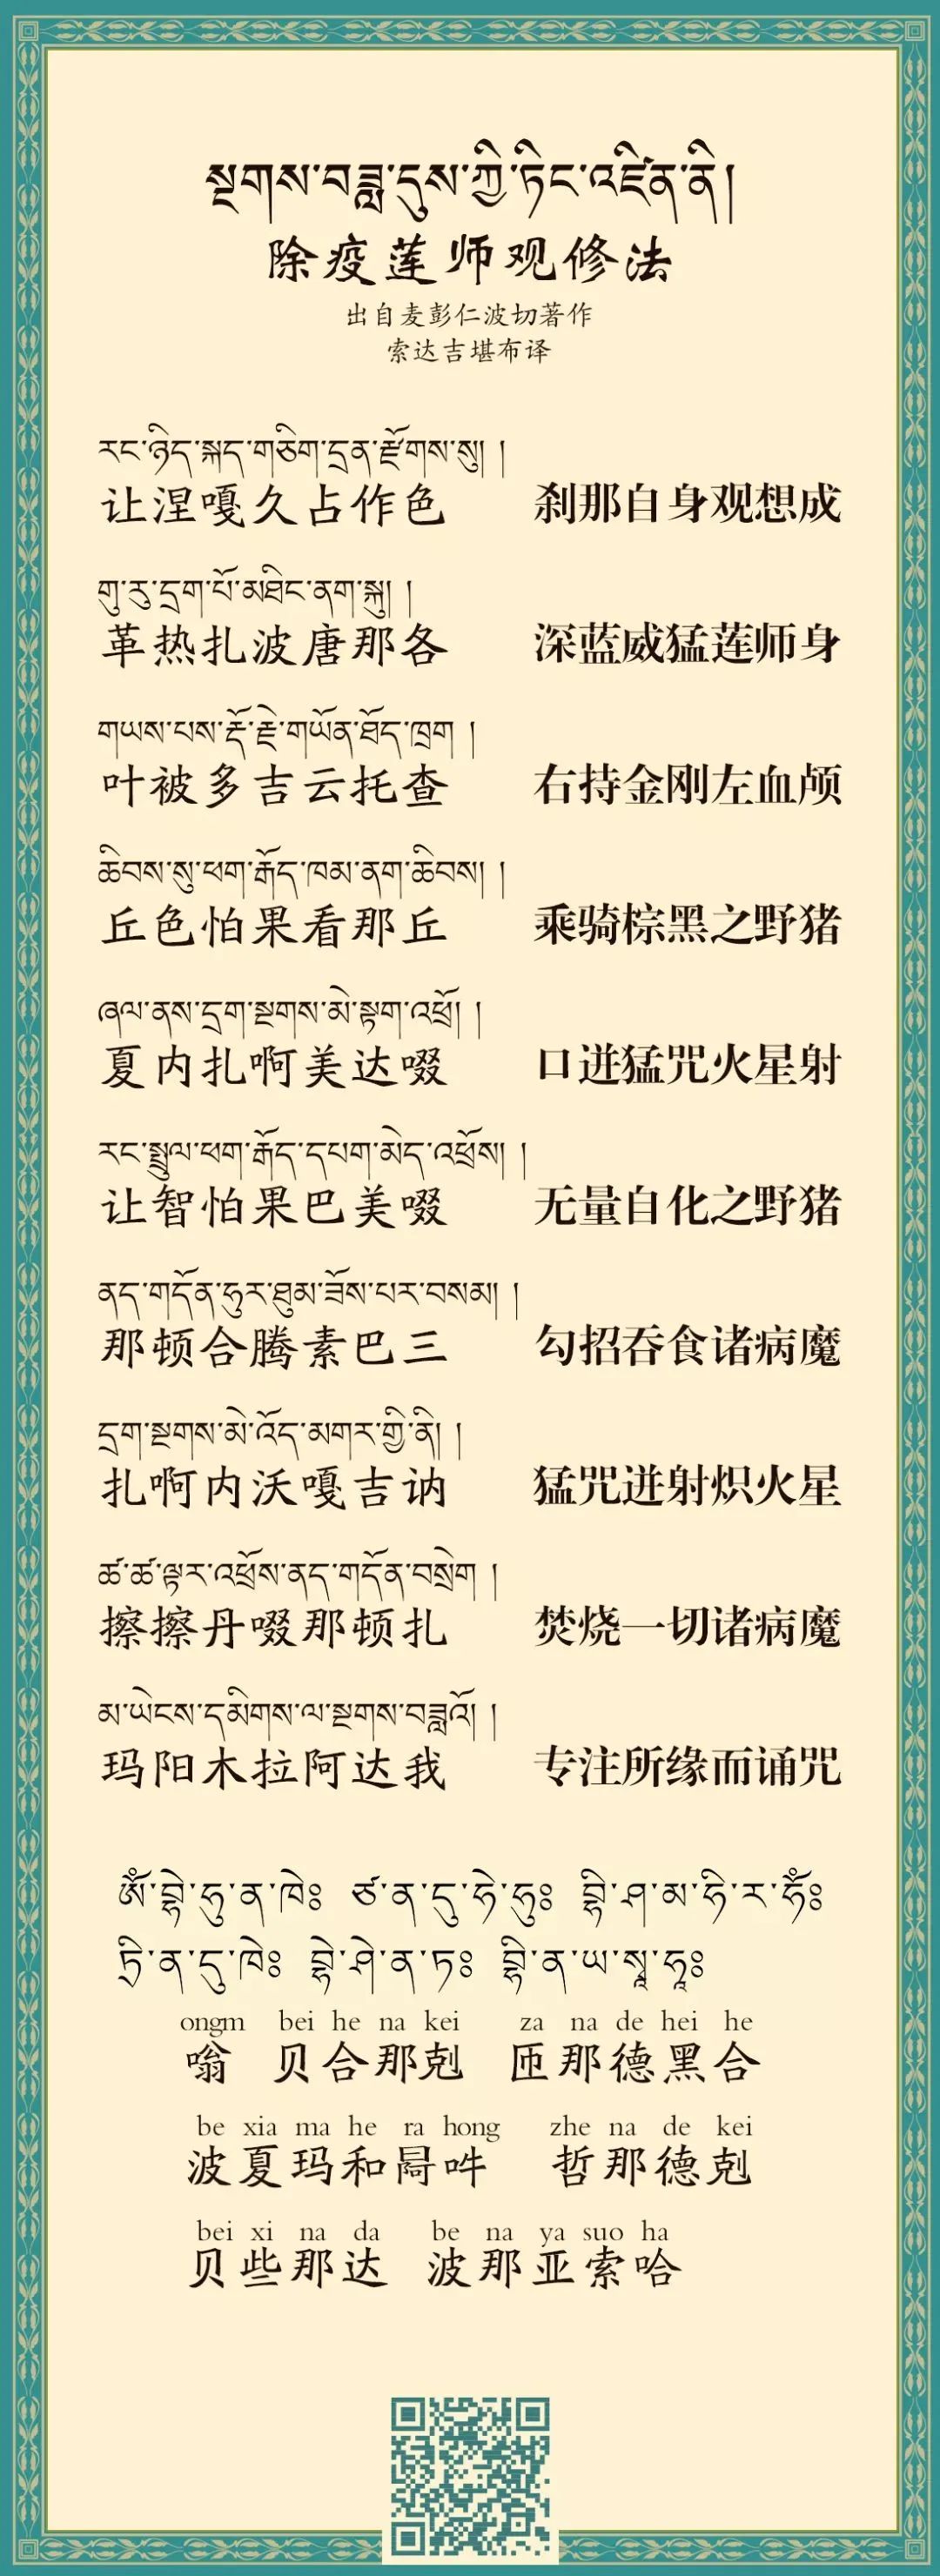 སྔགས་བཟླ་དུས་ཀྱི་ཏིང་འཛིན་ནི།
除疫莲师观修法
出自麦彭仁波切著作
索达吉堪布译
རང་ཉིད་སྐད་གཅིག་དྲན་རྫོགས་སུ། །
让涅嘎久占作色 刹那自身观想成
གུ་རུ་དྲག་པོ་མཐིང་ནག་སྐུ། །
革热扎波唐那各 深蓝威猛莲师身
གཡས་པས་རྡོ་རྗེ་གཡོན་ཐོད་ཁྲག །
叶被多吉云托查 右持金刚左血颅
ཆིབས་སུ་ཕག་རྒོད་ཁམ་ནག་ཆིབས། །
丘色怕果看那丘 乘骑棕黑之野猪
ཞལ་ནས་དྲག་སྔགས་མེ་སྟག་འཕྲོ། །
夏内扎啊美达啜 口迸猛咒火星射
རང་སྤྲུལ་ཕག་རྒོད་དཔག་མེད་འཕྲོས། །
让智怕果巴美啜 无量自化之野猪
ནད་གདོན་ཧུར་ཐུམ་ཟོས་པར་བསམ། །
那顿合腾素巴三 勾招吞食诸病魔
དྲག་སྔགས་མེ་འོད་མགར་གྱི་ནི། །
扎啊内沃嘎吉讷 猛咒迸射炽火星
ཚ་ཚ་ལྟར་འཕྲོས་ནད་གདོན་བསྲེག །
擦擦丹啜那顿扎 焚烧一切诸病魔
མ་ཡེངས་དམིགས་ལ་སྔགས་བཟླའོ། །
玛阳木拉阿达我 专注所缘而诵咒
ༀ་བྷེ་ཧུ་ན་ཁེཿ ཙ་ན་དུ་ཧེ་ཧུཿ བྷི་ཤ་མ་ཧི་ར་ཧོཾཿ
ཏྲི་ན་དུ་ཁེཿ བྷེ་ཤེ་ན་ཏཿ བྷི་ན་ཡ་སྭཱ་ཧཱཿ
ongm bei he na kei za na de hei he
嗡 贝合那剋 匝那德黑合
be xia ma he ra hong zhe na de kei
波夏玛和冔吽 哲那德剋
bei xi na da be na ya suo ha
贝些那达 波那亚索哈